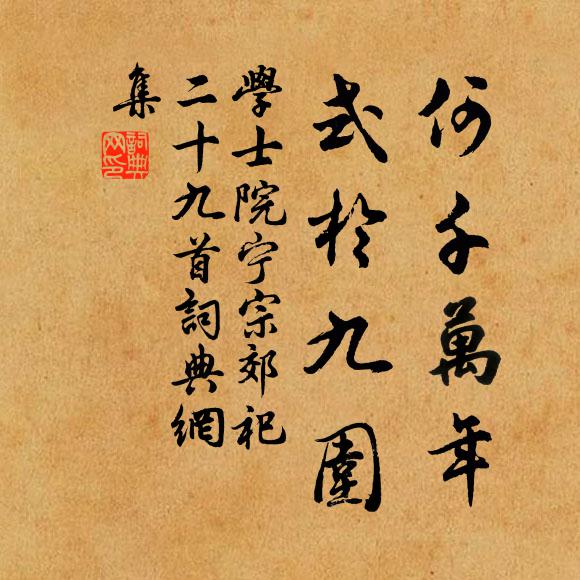 何千萬年
式於九圍
學士院宁宗郊祀
二十九首詞典網
集
詞典网印